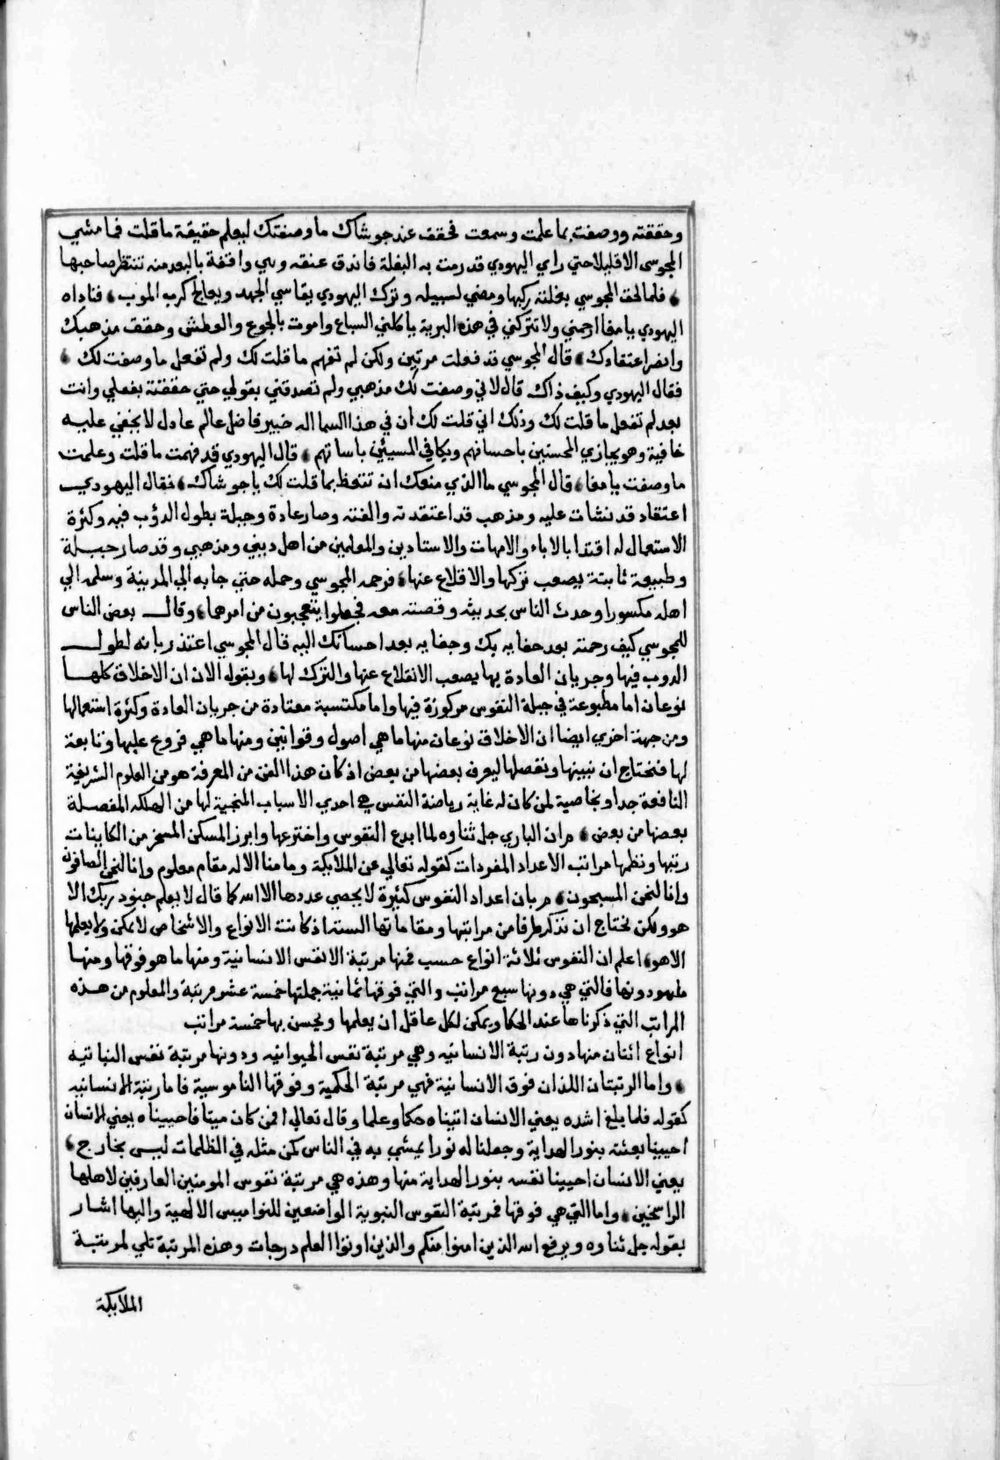 وحققته ووصفت بما علمت وسمعت فحقق عند جوشاك ما وصفتك ليعلم حقيقة ما قلت فما مشي
المجوسي الا قليلا حتي راي اليهودي قد رمت به البغلة فاندق عنقه وهي واقفة بالبعد منه تنتظر صاحبها
فلما لحق المجوسي بغلته ركبها ومضي لسبيله وترك اليهودي يقاسي الجهد ويعالج كرب الموت فناداه
اليهودي يا مغا ارحمني ولا تتركني في هذه البرية ياكلني السباع واموت بالجوع والعطش وحقق مذهبك
وانصر اعتقادك قال المجوسي قد فعلت مرتين ولكن لم تفهم ما قلت لك ولم تفعل ما وصفت لك
فقال اليهودي وكيف ذاك قال لاني وصفت لك مذهبي ولم تصدقني بقولي حتي حققته بفعلي وانت
بعد لم تفعل ما قلت لك وذلك اني قلت لك ان في هذا السما اله خبير فاضل عالم عادل لا يخفي عليه
خافية وهو يجازي المحسنين باحسانهم ويكافي المسيئين باساتهم قال اليهودي قد فهمت ما قلت وعلمت
ما وصفت يا مغا قال المجوسي ما الذي منعك ان تتعظ بما قلت لك يا جوشاك فقال اليهودي
اعتقاد قد نشات عليه ومذهب قد اعتقدته والفته وصار عادة وجبلة بطول الدؤب فيه وكثرة
الاستعمال له اقتدا بالاباء والامهات والاستادين والمعلمين من اهل ديني ومذهبي وقد صار جبلة
وطبيعة ثابتة يصعب تركها والاقلاع عنها فرحمه المجوسي وحمله حتي جا به الي المدينة وسلمه الي
اهله مكسورا وحدث الناس بحديثه وقصته معه فجعلوا يتعجبون من امرهما وقال بعض الناس
للمجوسي كيف رحمته بعد جفايه بك وجفايه بعد احسانك اليه قال المجوسي اعتذر بانه لطول
الدوب فيها وجريان العادة بها يصعب الانقلاع عنها والترك لها ويقوله الان ان الاخلاق كلها
نوعان اما مطبوعة في جبلة النفوس مركوزة فيها واما مكتسبة معتادة من جريان العادة وكثرة استعمالها
ومن جهة اخري ايضا ان الاخلاق نوعان منها ما هي اصول وقوانين ومنها ما هي فروع عليها وتابعة
لها فنحتاج ان نبينها ونفصلها ليعرف بعضها من بعض اذ كان هذا الفن من المعرفة هو من العلوم الشريفة
النافعة جدا وبخاصية لمن كان له غاية رياضة النفس هي احدي الاسباب المنجية لها من الهلكه المفصلة
بعضها من بعض ان الباري جل ثناوه لما ابدع النفوس واخترعها وابرز المسكن المسخر من الكاينات
رتبها ونظمها مراتب الاعداد المفردات كقوله تعالي عن الملايكة وما منا الا له مقام معلوم وانا لنحن الصافون
وانا لنحن المسبحون بان اعداد النفوس كثيرة لا يحصي عددها الا الله كما قال لا يعلم جنود ربك الا
هو ولكن نحتاج ان نذكر طرفا من مراتبها ومقاماتها الستة اذ كانت الانواع والاشخاص لا يمكن ولا يعلمها
الا هو اعلم ان النفوس ثلاثة انواع حسب فمنها مرتبة الانفس الانسانية ومنها ما هو فوقها ومنها
ما هو دونها فالتي هي دونها سبع مراتب والتي فوقها ثمانية جملتها خمسة عشر مرتبة والمعلوم من هذه
المراتب التي ذكرناها عند الحكما ويمكن لكل عاقل ان يعلمها ويحسن بها خمسة مراتب
انواع اثنان منها دون رتبة الانسانيه وهي مرتبة نفس الحيوانيه ودونها مرتبة نفس النباتيه
واما الرتبتان اللذان فوق الانسانية فهي مرتبة الحكمية وفوقها الناموسية فاما رتبة الانسانيه
كقوله فلما بلغ اشده يعني الانسان اتيناه حكما وعلما وقال تعالي افمن كان ميتا فاحييناه يعني الانسان
احيينا بعثته بنور الهداية وجعلنا له نورا يمشي به في الناس كمن مثله في الظلمات ليس بخارج
يعني الانسان احيينا نفسه بنور الهداية منها وهذه هي مرتبة نفوس المومنين العارفين لاهلها
الراسخين واما التي هي فوقها فمرتبة النفوس النبوية الواضعين للنواميس الالهية واليها اشار
بقوله جل ثناوه ويرفع الله الذين امنوا منكم والذين اوتوا العلم درجات وهذه المرتبة تلي لمرتبة
الملايكة